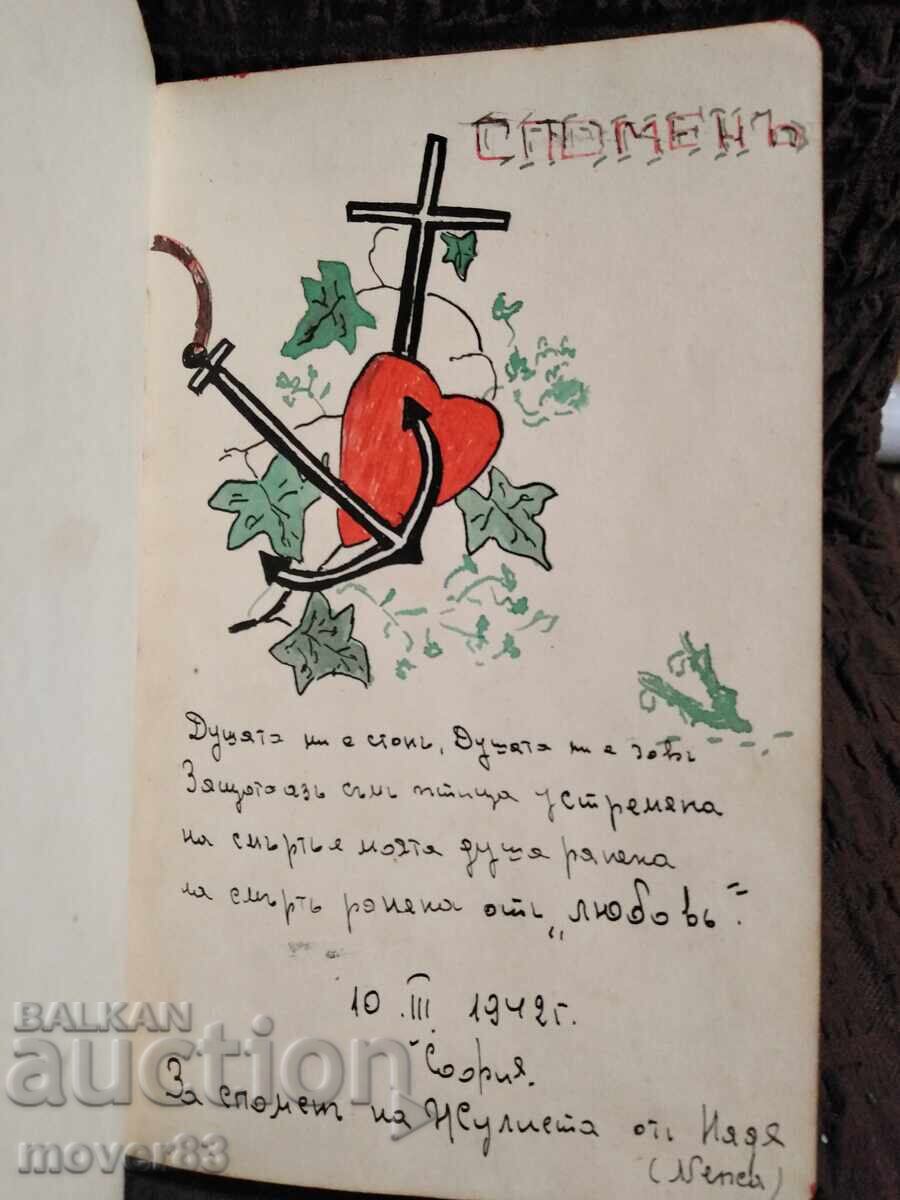 СПОМЕНЪ
Душата ми е стонъ, Душата ми е зовъ
Защото азъ съмъ птица устремена
на смърть е моята душа ранена
на смърть ранена отъ „любовь".
10.III. 1942 г.
София.
За споменъ на Жулиета отъ Надя
BALKAN
auction
mover83